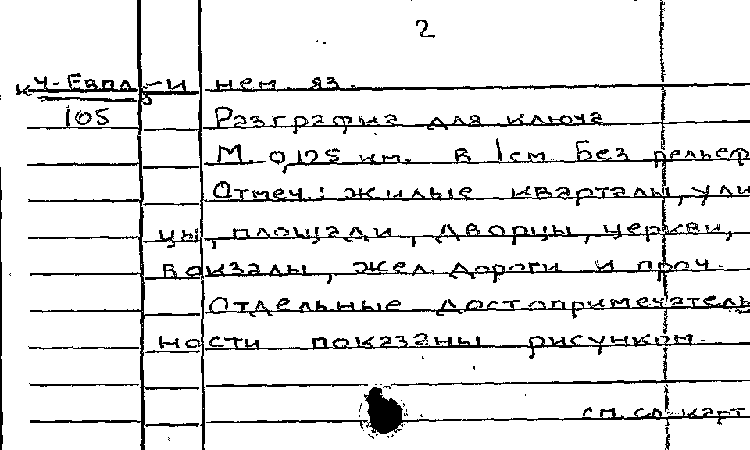 2
К 4-Европ.-и нем. яз.
105 Разграфка для ключа
М. 0,125 км. в 1 см Без рельеф
Отмеч.: жилые кварталы, ули
цы, площади, дворцы, церкви,
вокзалы, жел. дороги и проч.
Отдельные достопримечатель
ности показаны рисунком.
см. сл. карт